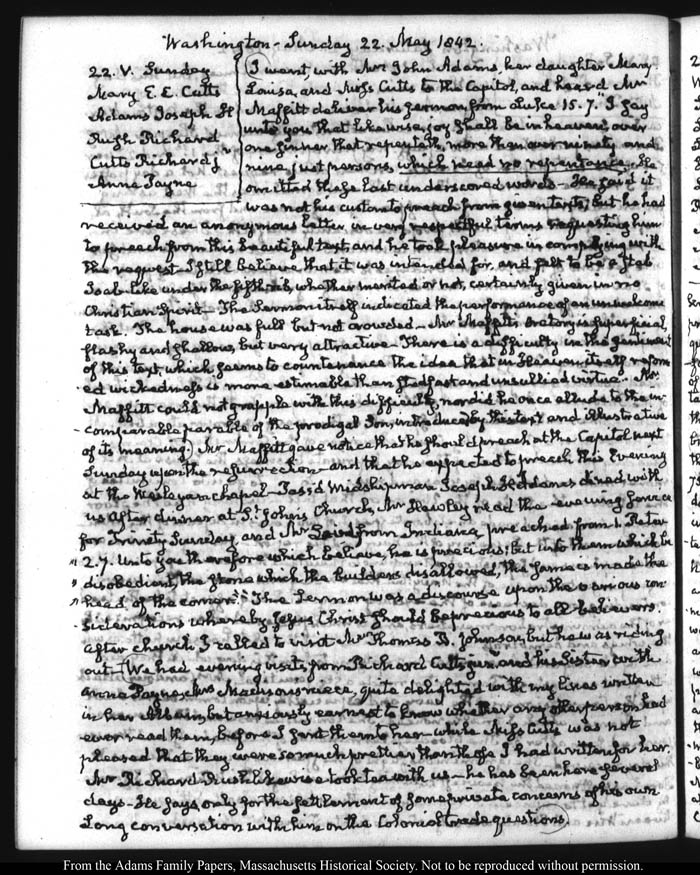 Washington - Sunday 22. May 1842.
22. V. Sunday
Mary E. E. Cutts
Adams Joseph H
Rush Richard
Cutts Richard jr
Anna Payne
I went, with Mrs John Adams, her daughter Mary
Louisa, and Miss Cutts to the Capitol, and heard Mr
Maffitt deliver his sermon, from Luke 15. 7. I say
unto you that likewise, joy shall be in heaven, over
one sinner that repenteth, more than over ninety and
nine just persons, which need no repentance. He
omitted these last underscored words - He said it
was not his custom to preach from given texts, but he had
received an anonymous letter in very respectful terms requesting him
to preach from this beautiful text, and he took pleasure in complying with
the request. I still believe, that it was intended for, and felt to be a stab
Joab-like under the fifth rib, whether merited or not, certainly given in no
Christian Spirit - The Sermon itself indicated the performance of an unwelcome
task. The house was full but not crowded - Mr Maffitt's Oratory is superficial,
flashy and shallow, but very attractive - There is a difficulty in the
of this text, which seems to countenance the idea that in Heaven itself reform
ed wickedness is more estimable than stedfast and unsullied virtue. Mr
Maffitt could not grapple with this difficulty, nor did he once allude to the in-
comparable parable of the prodigal Son introduced by the text and illustrative
of its meaning. Mr Maffitt gave notice that he should preach at the Capitol next
Sunday upon the resurrection and that he expected to preach this Evening
at the Wesleyan chapel - Pass'd Midshipman Joseph H Adams dined with
us After dinner at St. John's Church, Mr Hawley read the evening service
for Trinity Sunday, and Mr from Indiana, preached from 1. Peter
2. 7. Unto you therefore which believe, he is precious; but unto them which be
disobedient, the stone which the builders disallowed, the same is made the
head of the corner." The Sermon was a discourse upon the various con-
siderations whereby Jesus Christ should be precious to all believers.
After church I called to visit Mr Thomas B. Johnson, but he was riding
out - We had evening visits from Richard Cutts junr. and his Sister with
Anna Payne, Mrs Madison's niece, quite delighted with my lines written
in her Album, but anxiously earnest to know whether any other person had
ever read them, before I sent them to her - while Miss Cutts was not
pleased that they were so much prettier than those I had written for her.
Mr Richard Rush likewise took tea with us - he has been here several
days - He says, only for the settlement of some private concerns of his own
Long conversation with him on the Colonial trade questions.
From the Adams Family Papers, Massachusetts Historical Society. Not to be reproduced without permission.